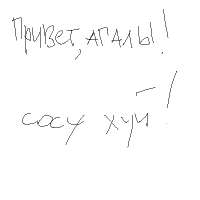 Привет, агалы!
сосу хуй!